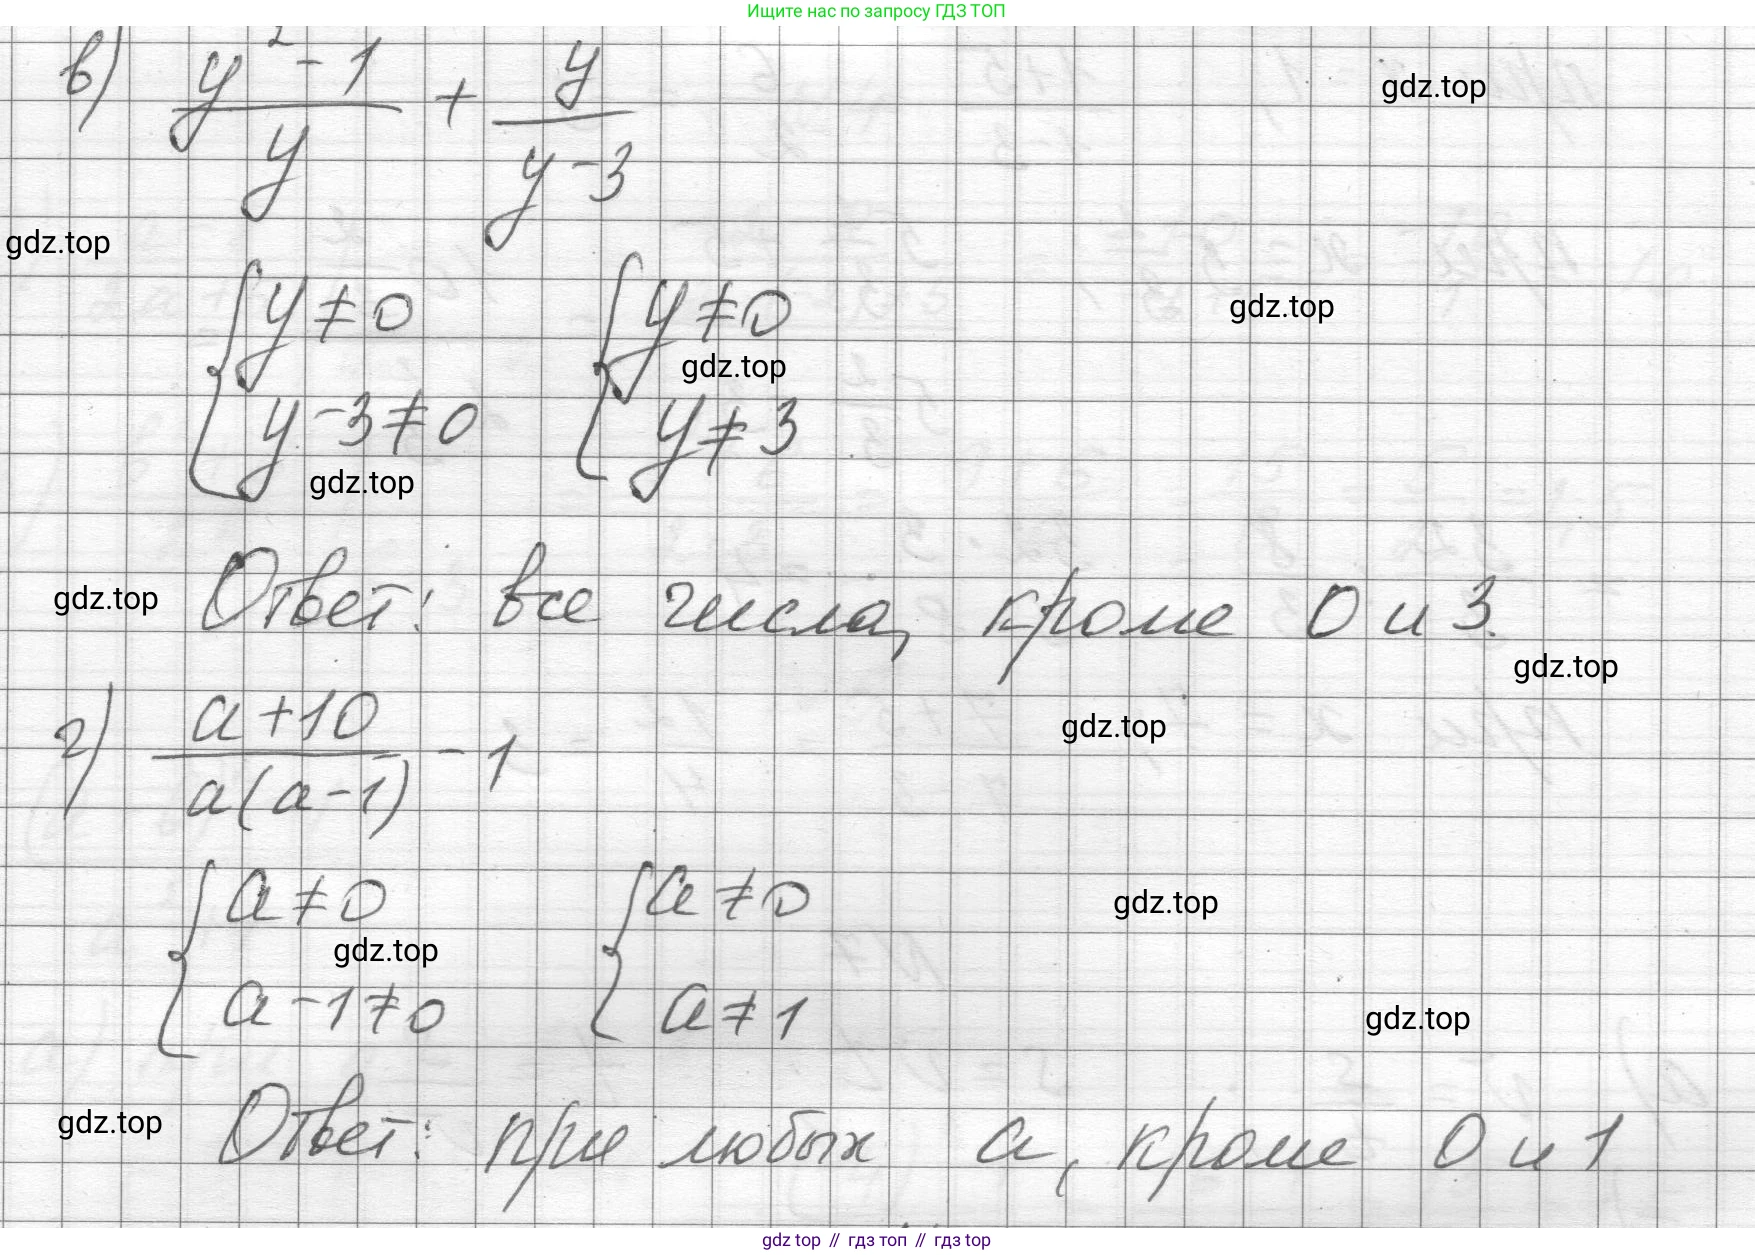 Ищите нас по запросу ГДЗ ТОП
в) (y² - 1)/y + y/(y - 3)
gdz.top
gdz.top
{ y ≠ 0 { y ≠ 0
gdz.top
gdz.top
{ y - 3 ≠ 0 { y ≠ 3
gdz.top
gdz.top
Ответ: все числа, кроме 0 и 3.
gdz.top
г) (a + 10)/(a(a - 1)) - 1
gdz.top
{ a ≠ 0 { a ≠ 0
gdz.top
gdz.top
{ a - 1 ≠ 0 { a ≠ 1
gdz.top
gdz.top
Ответ: при любых a, кроме 0 и 1
gdz top // гдз топ // гдз top